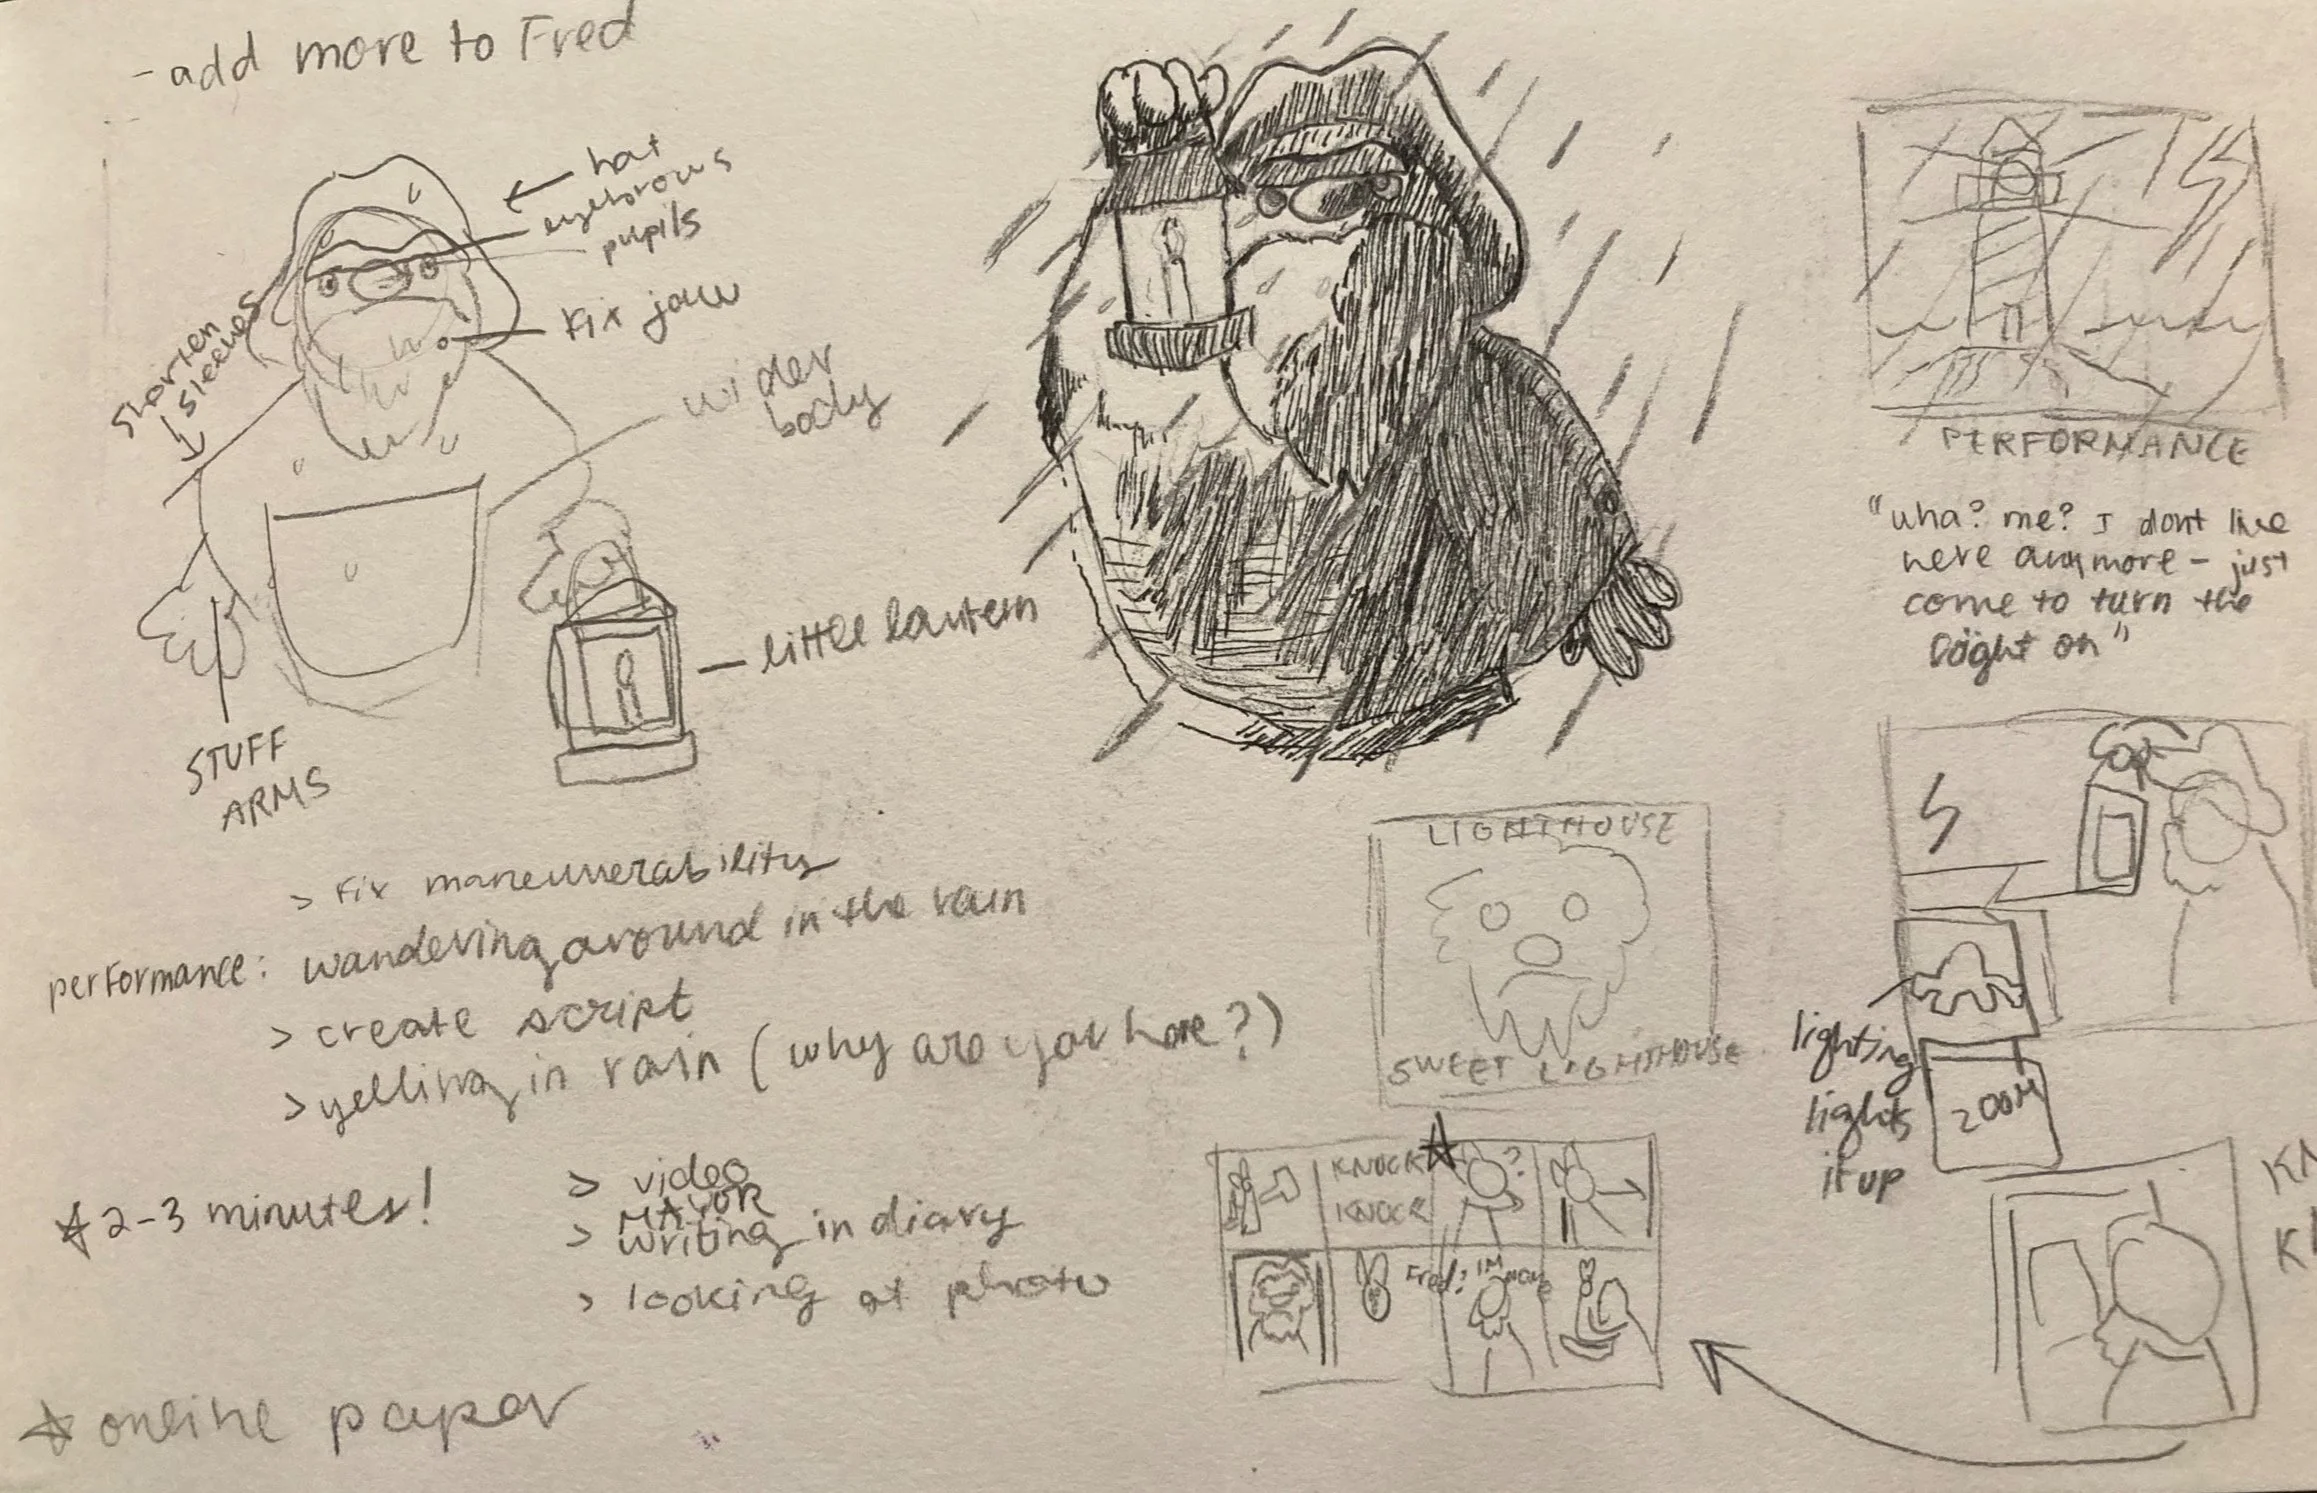 -add more to Fred
hat
eyebrows
pupils
Fix jaw
shorten
sleeves
wider
body
little lantern
STUFF
ARMS
> Fix maneuverability
performance: wandering around in the rain
> create script
> yelling in rain (why are you here?)
2-3 minutes!
> video
MAYOR
> writing in diary
> looking at photo
online paper
PERFORMANCE
"wha? me? I dont live
here anymore - just
come to turn the
on"
LIGHTHOUSE
SWEET LIGHTHOUSE
lighting
lights
it up
ZOOM
KNOCK
KNOCK
?
Fred? IM HOME
KN
K